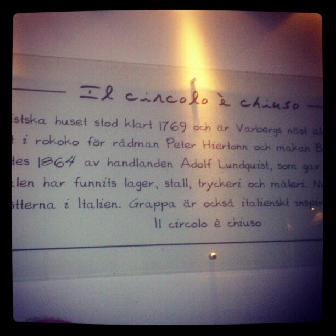 Il circolo è chiuso
huset stod klart 1769 och är Varbergs näst
i rokoko för rådman Peter Hiertonn och makan
1864 av handlanden Adolf Lundquist, som
har funnits lager, stall, tryckeri och måleri.
i Italien. Grappa är också italienskt
Il circolo è chiuso